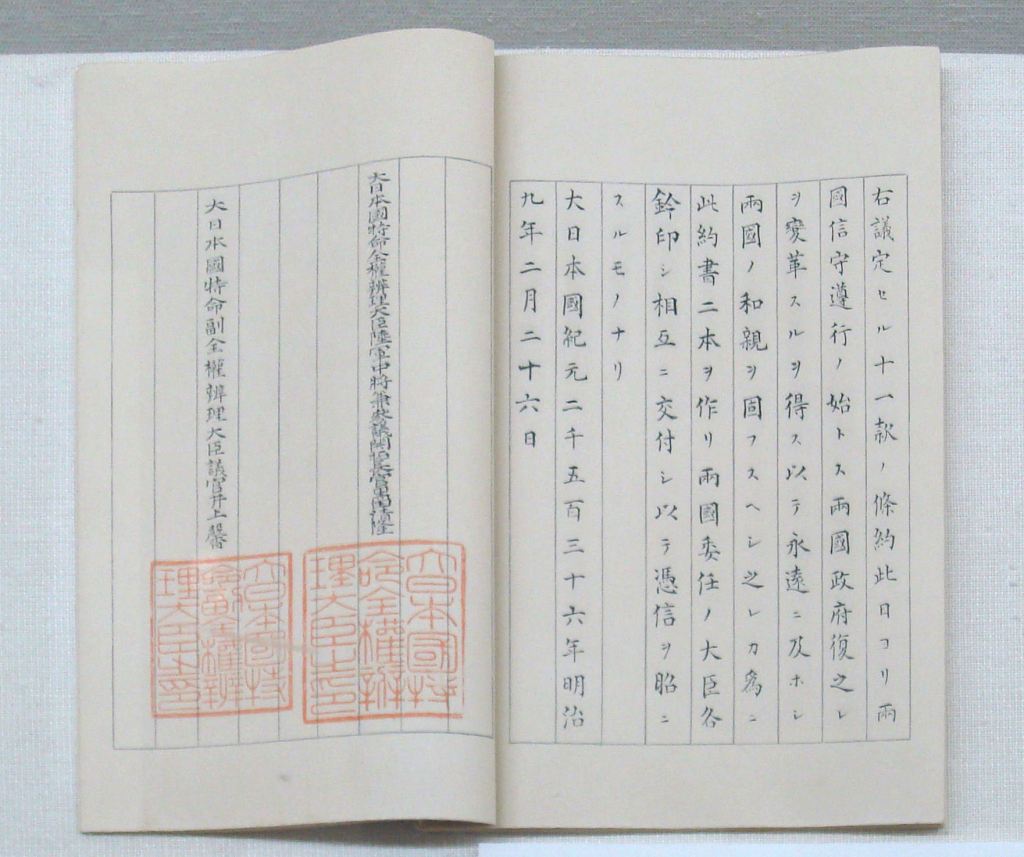 右議定セル十一款ノ條約此日ヨリ兩
國信守遵行ノ始トス兩國政府復之レ
ヲ變革スルヲ得ス以テ永遠ニ及ホシ
兩國ノ和親ヲ固フスヘシ之レカ爲ニ
此約書二本ヲ作リ兩國委任ノ大臣各
鈐印シ相互ニ交付シ以テ憑信ヲ昭ニ
スルモノナリ
大日本國紀元二千五百三十六年明治
九年二月二十六日
大日本國特命全權辨理大臣陸軍中將兼參議開拓長官黑田清隆
大日本國特命全權辨理大臣之印
大日本國特命副全權辨理大臣議官井上馨
大日本國特命副全權辨理大臣之印